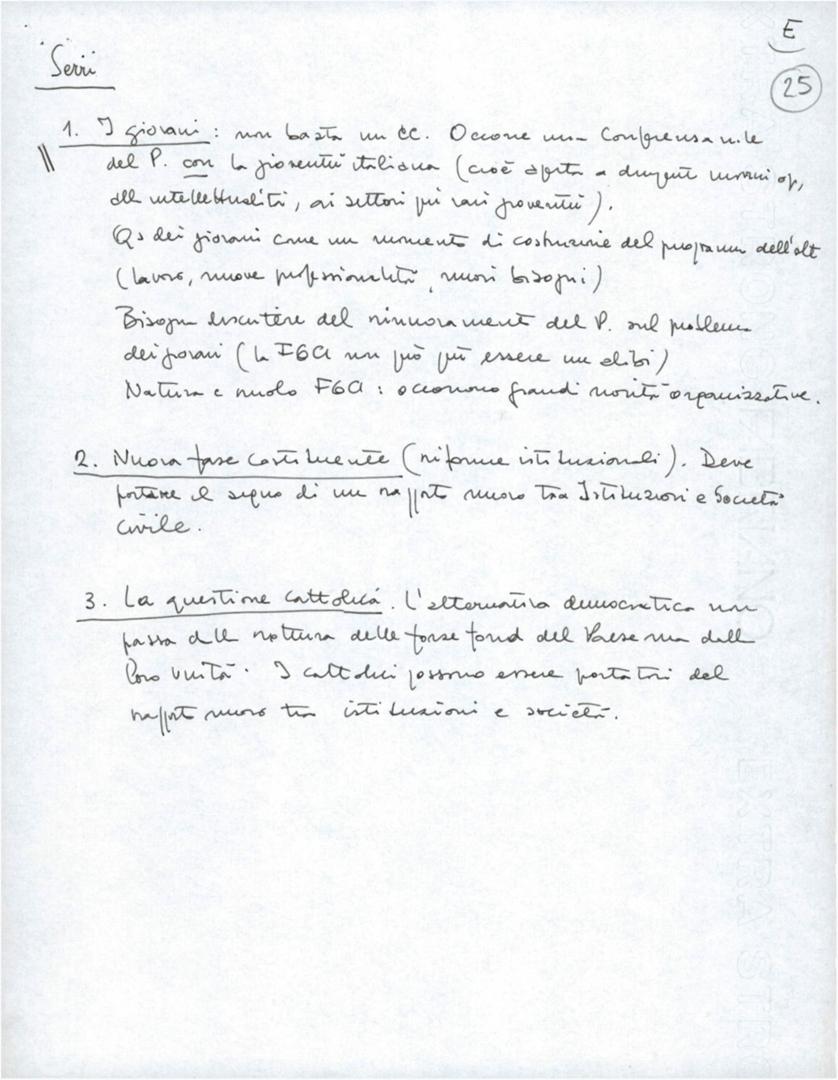 E
25
Serri
1. I giovani: non basta un CC. Occorre una Conferenza n.le
del P. con la gioventù italiana (cioè aperta a dirigenti movim op,
all'intellettualità, ai settori più vari gioventù).
Qs dei giovani come un momento di costruzione del programma dell'alt
(lavoro, nuove professionalità, nuovi bisogni)
Bisogna discutere del rinnovamento del P. sul problema
dei giovani (la FGCI non può più essere un alibi)
Natura e ruolo FGCI: occorrono grandi novità organizzative.
2. Nuova fase costituente (riforme istituzionali). Deve
portare il segno di un rapporto nuovo tra Istituzioni e Società
civile.
3. La questione cattolica. L'alternativa democratica non
passa dalla rottura delle forze fond del Paese ma dalla
loro unità. I cattolici possono essere portatori del
rapporto nuovo tra istituzioni e società.